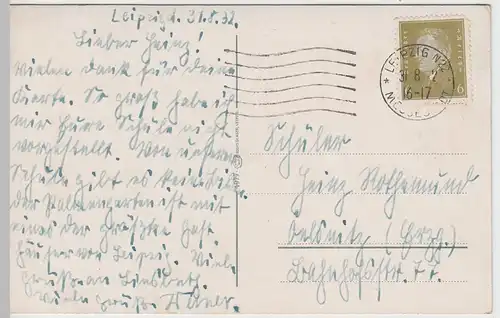 Leipzig d. 31.8.32.
Lieber Heinz!
Vielen Dank für deine
Karte. So groß habe ich
mir Eure Schule nicht
vorgestellt. Von unserer
Schule gibt es keine
der Palmengarten ist mit
eines der größten Gast
häuser von Leipzig. Viele
Grüße an Liesbeth.
Viele Grüße
LEIPZIG N24
31 8
16-17
6
Schüler
Heinz Rothemund
Oelsnitz (Erzg.)
Bahnhofstr. 77.